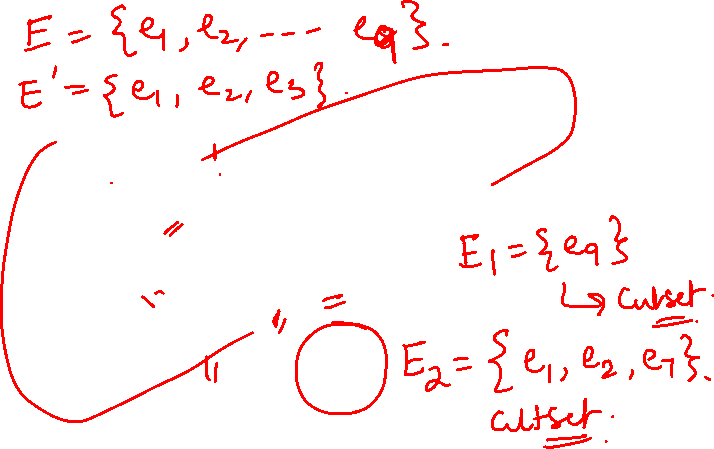 E = {e₁, e₂, ---- e₉}.
E' = {e₁, e₂, e₃}.
E₁ = {e₉}
↳ Cutset.
E₂ = {e₁, e₂, e₇}.
Cutset.